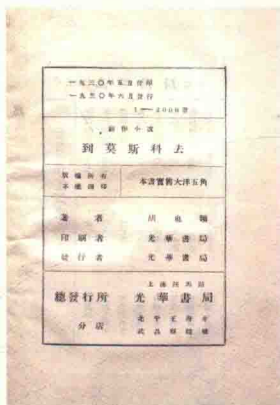 一九三〇年五月付印
一九三〇年六月發行
1——2000冊
創作小說
到莫斯科去
版權所有
不准翻印
本書實價大洋五角
著者 胡也頻
印刷者 光華書局
發行者 光華書局
上海四馬路
總發行所 光華書局
分店
北平
武昌